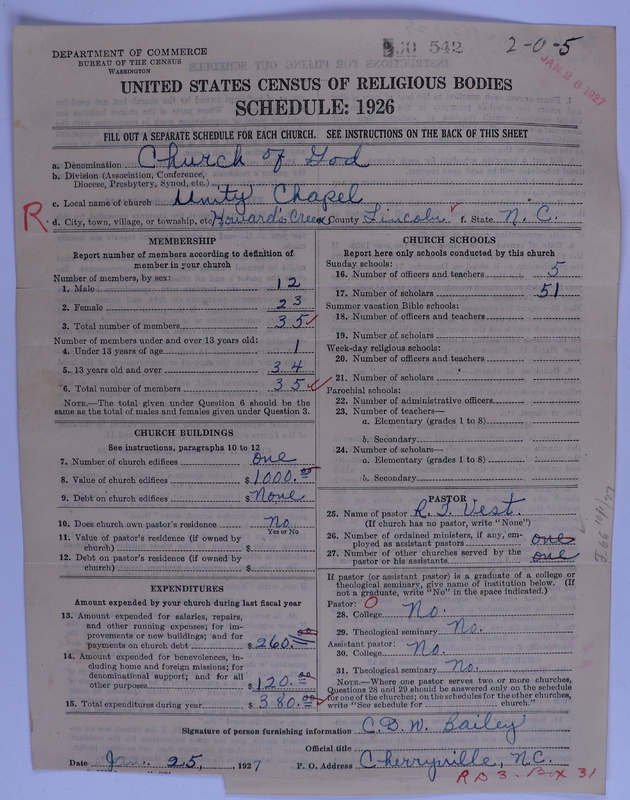 DEPARTMENT OF COMMERCE
BUREAU OF THE CENSUS
WASHINGTON
30 542
2-0-5
JAN 26 1927
UNITED STATES CENSUS OF RELIGIOUS BODIES
SCHEDULE: 1926
FILL OUT A SEPARATE SCHEDULE FOR EACH CHURCH. SEE INSTRUCTIONS ON THE BACK OF THIS SHEET
a. Denomination Church of God
b. Division (Association, Conference,
Diocese, Presbytery, Synod, etc.)
c. Local name of church Unity Chapel
R.
d. City, town, village, or township, etc. Howards Creek County Lincoln f. State N. C.
MEMBERSHIP
Report number of members according to definition of
member in your church
Number of members, by sex:
1. Male 12
2. Female 23
3. Total number of members 35
Number of members under and over 13 years old:
4. Under 13 years of age 1
5. 13 years old and over 34
6. Total number of members 35
NOTE.—The total given under Question 6 should be the
same as the total of males and females given under Question 3.
CHURCH BUILDINGS
See instructions, paragraphs 10 to 12
7. Number of church edifices one
8. Value of church edifices $1000.00
9. Debt on church edifices $None
10. Does church own pastor's residence No
Yes or No
11. Value of pastor's residence (if owned by
church) $
12. Debt on pastor's residence (if owned by
church) $
EXPENDITURES
Amount expended by your church during last fiscal year
13. Amount expended for salaries, repairs,
and other running expenses; for im-
provements or new buildings; and for
payments on church debt $260.00
14. Amount expended for benevolences, in-
cluding home and foreign missions; for
denominational support; and for all
other purposes $120.00
15. Total expenditures during year $380.00
CHURCH SCHOOLS
Report here only schools conducted by this church
Sunday schools:
16. Number of officers and teachers 5
17. Number of scholars 51
Summer vacation Bible schools:
18. Number of officers and teachers
19. Number of scholars
Week-day religious schools:
20. Number of officers and teachers
21. Number of scholars
Parochial schools:
22. Number of administrative officers
23. Number of teachers—
a. Elementary (grades 1 to 8)
b. Secondary
24. Number of scholars—
a. Elementary (grades 1 to 8)
b. Secondary
PASTOR
25. Name of pastor R. F. Vest.
(If church has no pastor, write "None")
26. Number of ordained ministers, if any, em-
ployed as assistant pastors one
27. Number of other churches served by the
pastor or his assistants one
If pastor (or assistant pastor) is a graduate of a college or
theological seminary, give name of institution below. (If
not a graduate, write "No" in the space indicated.)
Pastor: O
28. College No.
29. Theological seminary No.
Assistant pastor:
30. College No.
31. Theological seminary No.
NOTE.—Where one pastor serves two or more churches,
Questions 28 and 29 should be answered only on the schedule
for one of the churches; on the schedules for the other churches,
write "See schedule for church."
Signature of person furnishing information C. D. W. Bailey
Official title
Date Jan. 25, 1927 P. O. Address Cherryville, N.C.
R D 3. Box 31